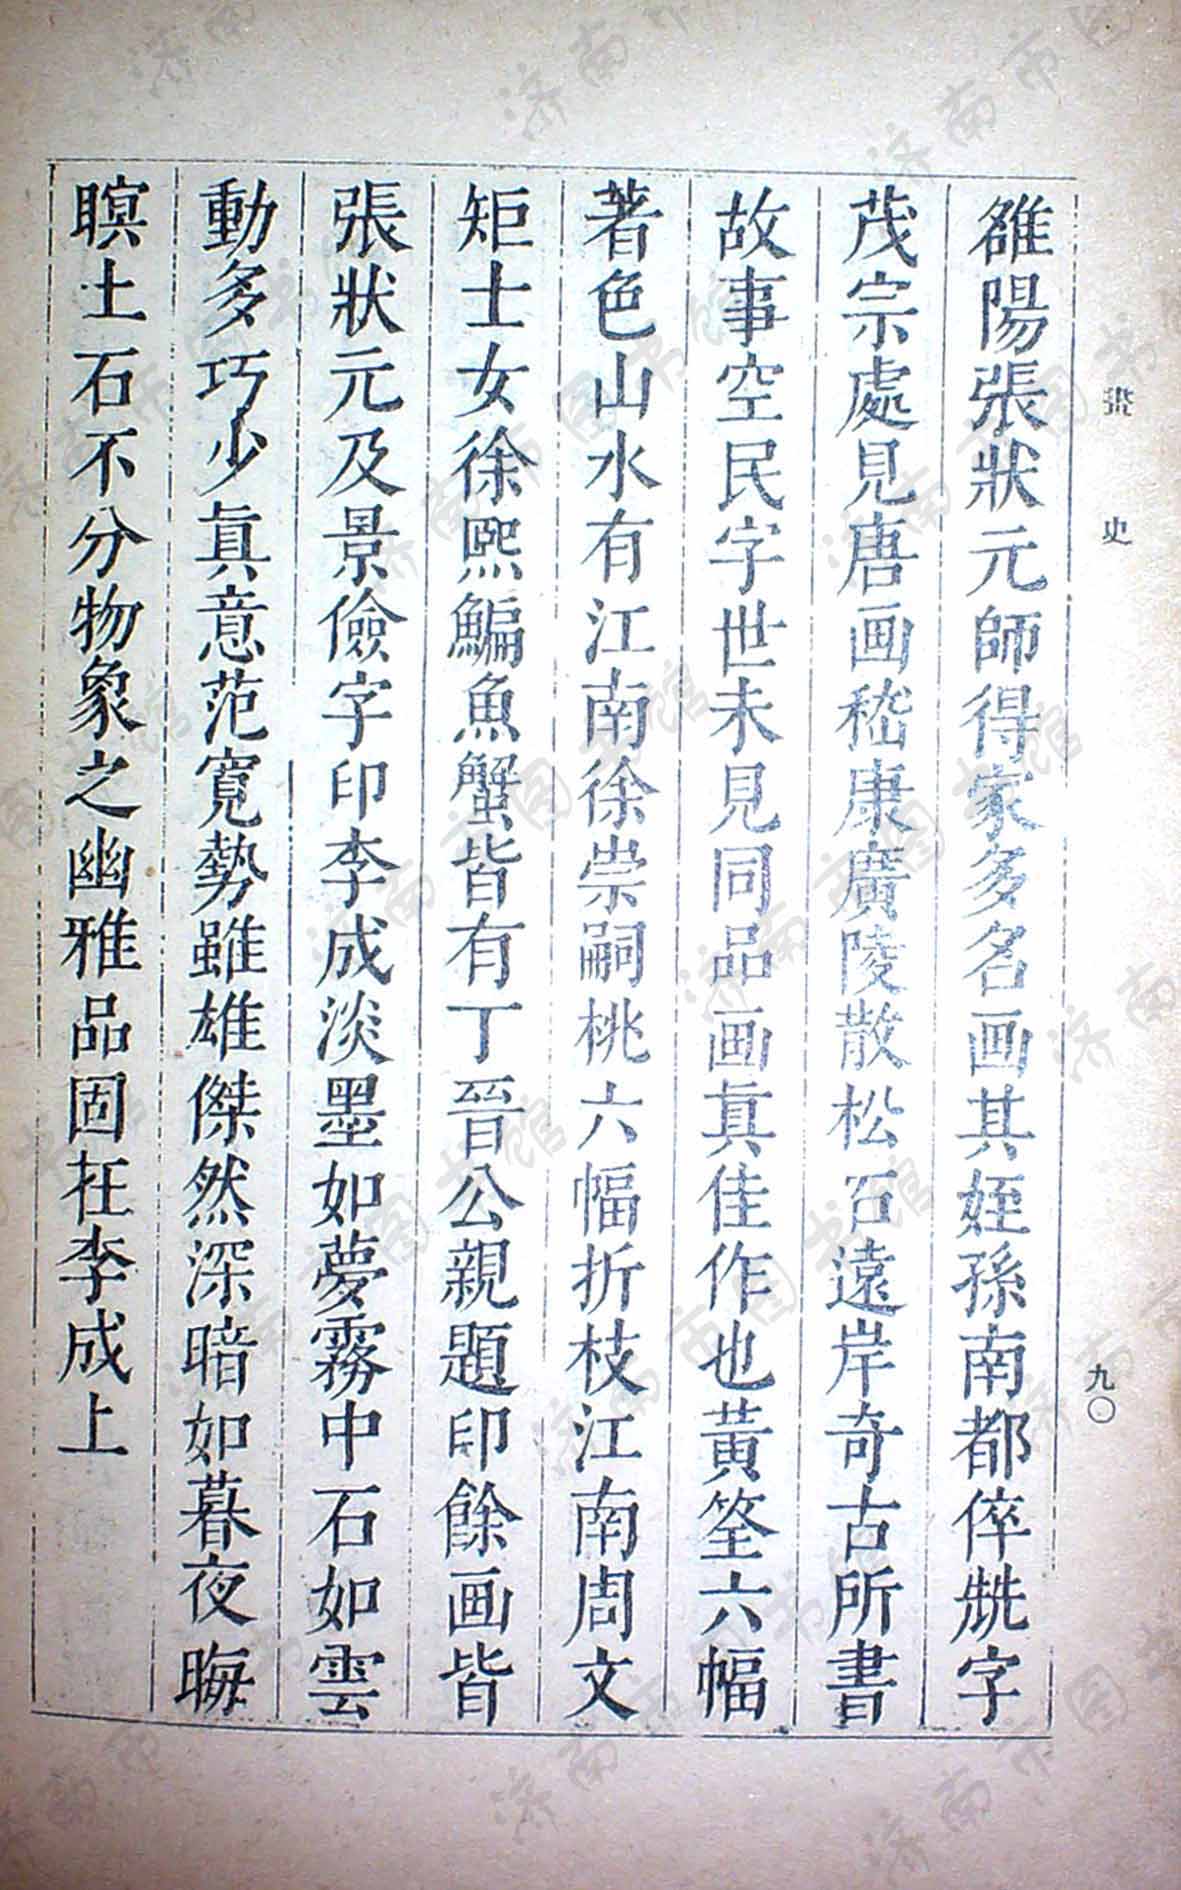 畫史
九〇
雒陽張狀元師得家多名画其姪孫南都倅兟字
茂宗處見唐画嵇康廣陵散松石遠岸奇古所書
故事空民字世未見同品画眞佳作也黃筌六幅
著色山水有江南徐崇嗣桃六幅折枝江南周文
矩士女徐熙鯿魚蟹皆有丁晉公親題印餘画皆
張狀元及景儉字印李成淡墨如夢霧中石如雲
動多巧少眞意范寬勢雖雄傑然深暗如暮夜晦
暝土石不分物象之幽雅品固在李成上
济南市图书馆